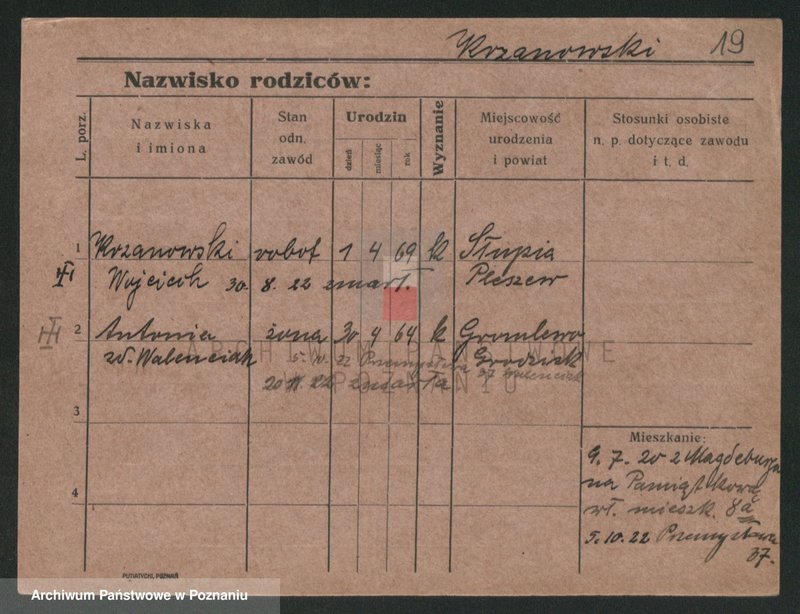 Krzanowski 19
Nazwisko rodziców:
L. porz.
Nazwiska i imiona
Stan odn. zawód
Urodzin
dzień miesiąc rok
Wyznanie
Miejscowość urodzenia i powiat
Stosunki osobiste n. p. dotyczące zawodu i t. d.
1 Krzanowski robot 1 4 69 k Słupia
Wojciech 30. 8. 22 zmarł. Pleszew
2 Antonia żona 30 4 64 k
zd. Walenciak 5. 10. 22 Przemysłowa Grodzisk
37 Walenciak
22 zmarła
ARCHIWUM PAŃSTWOWE
W POZNANIU
3
Mieszkanie:
9. 7. 20 z Magdeburga
na Pamiątkową
wł. mieszk. 8a
4
5. 10. 22 Przemysłowa
37.
PUTIATYCKI, POZNAŃ
Archiwum Państwowe w Poznaniu